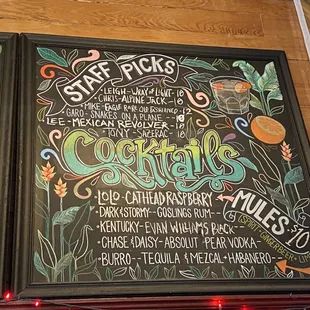 STAFF PICKS
LEIGH-WRAY OF LIGHT-10
CHRIS-ALPINE JACK-10
MIKE-EAGLE RARE OLD FASHIONED-12
GARO-SNAKES ON A PLANE
LEE-MEXICAN REVOLVER
TONY-SAZERAC-
Cocktails
MULES-$10
(SPIRIT, GINGER BEER + LIME
LOLO-CATHEAD RASPBERRY
DARK & STORMY-GOSLINGS RUM
KENTUCKY-EVAN WILLIAMS BLACK
CHASE & DAISY-ABSOLUT PEAR VODKA
BURRO--TEQUILA & MEZCAL+HABANERO